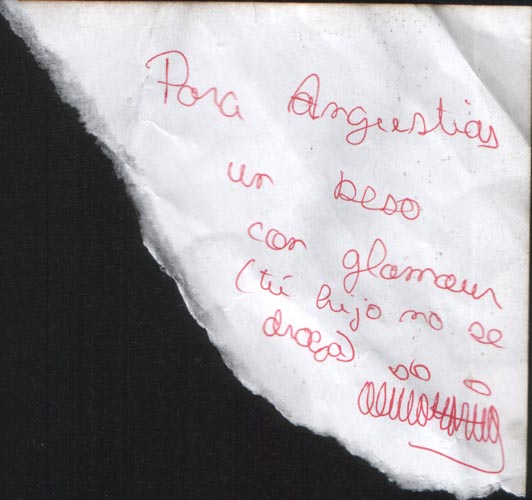 Para Angustias
un beso
con glamour
(tú hijo no se
droga)